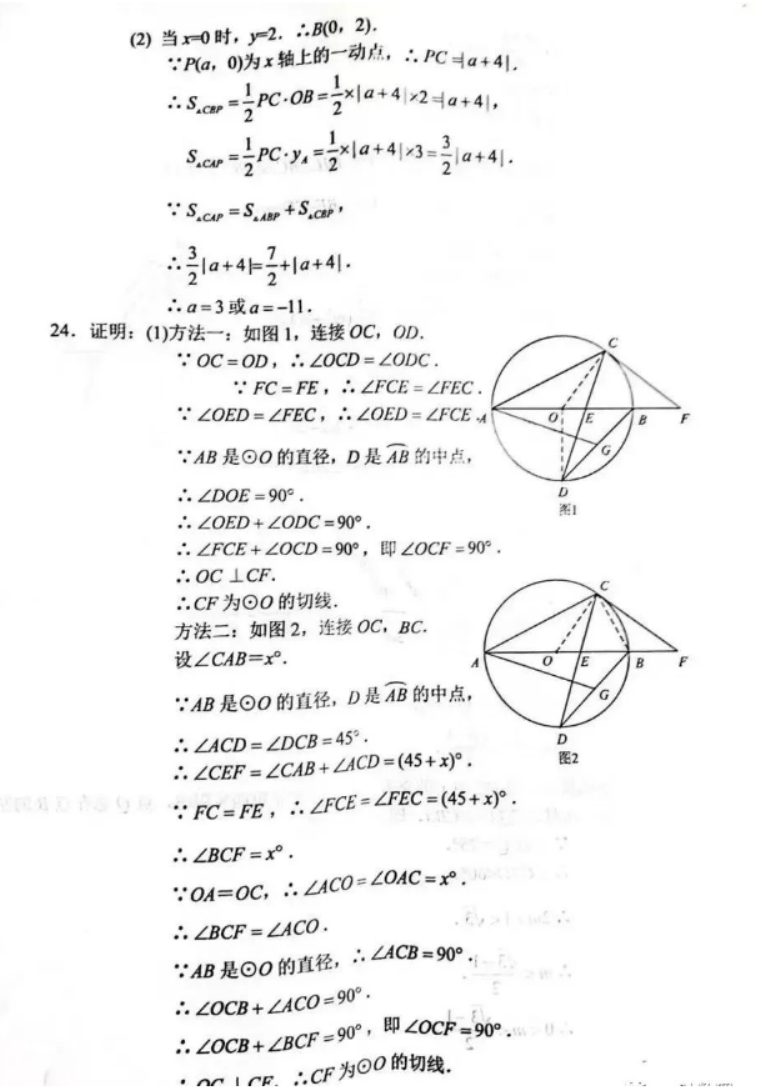 (2) 当x=0时，y=2. ∴B(0，2).
∵P(a，0)为x轴上的一动点，∴PC=|a+4|.
∴S△CBP=1/2PC·OB=1/2×|a+4|×2=|a+4|，
S△CAP=1/2PC·yA=1/2×|a+4|×3=3/2|a+4|.
∵S△CAP=S△ABP+S△CBP，
∴3/2|a+4|=7/2+|a+4|.
∴a=3或a=-11.
24. 证明：(1)方法一：如图1，连接OC，OD.
∵OC=OD，∴∠OCD=∠ODC.
∵FC=FE，∴∠FCE=∠FEC.
∵∠OED=∠FEC，∴∠OED=∠FCE.
∵AB是⊙O的直径，D是AB的中点，
∴∠DOE=90°.
∴∠OED+∠ODC=90°.
∴∠FCE+∠OCD=90°，即∠OCF=90°.
∴OC⊥CF.
∴CF为⊙O的切线.
C
A
O
E
B
F
G
D
图1
方法二：如图2，连接OC，BC.
设∠CAB=x°.
∵AB是⊙O的直径，D是AB的中点，
∴∠ACD=∠DCB=45°.
∴∠CEF=∠CAB+∠ACD=(45+x)°.
∵FC=FE，∴∠FCE=∠FEC=(45+x)°.
∴∠BCF=x°.
∵OA=OC，∴∠ACO=∠OAC=x°.
∴∠BCF=∠ACO.
∵AB是⊙O的直径，∴∠ACB=90°.
∴∠OCB+∠ACO=90°.
∴∠OCB+∠BCF=90°，即∠OCF=90°.
∴OC⊥CF. ∴CF为⊙O的切线.
C
A
O
E
B
F
G
D
图2